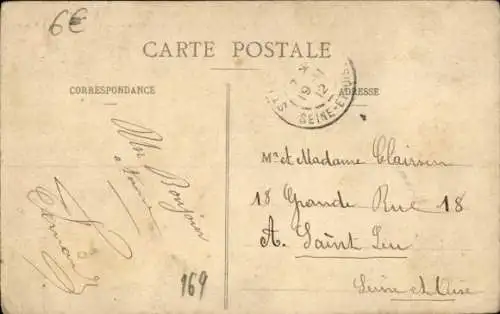 6€
CARTE POSTALE
CORRESPONDANCE
ADRESSE
19
12
SEINE-ET-OISE
Un Bonjour
à
169
Mr et Madame Clairsin
18 Grande Rue 18
A. Saint Leu
Seine et Oise